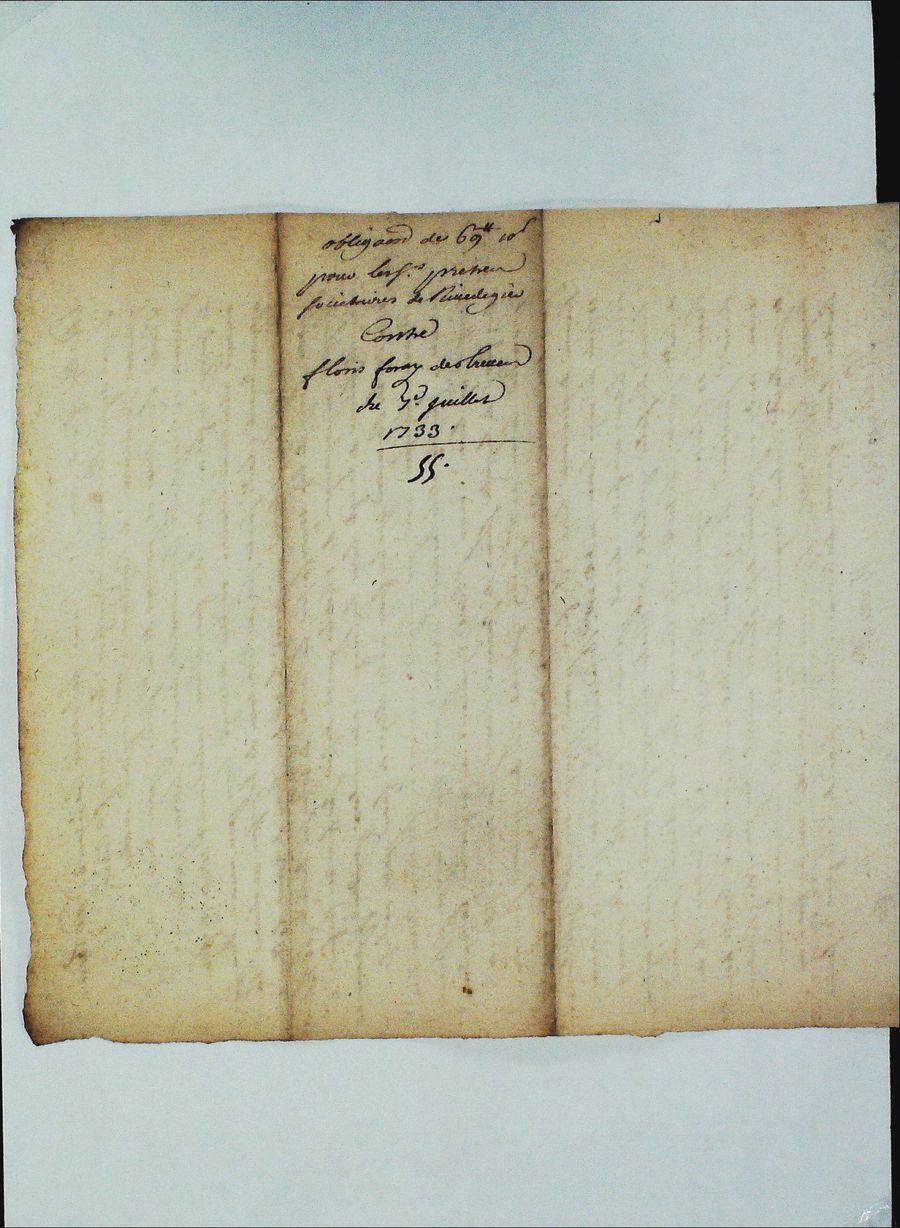 obligaon de 69tt 10s
pour les srs pretres
societaires de Rivedegier
Contre
floris foray
du 7e juillet
1733.
55.